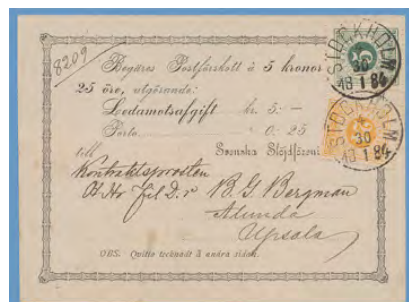 8209
Begäres Postförskott à 5 kronor
25 öre, utgörande:
Ledamotsafgift kr. 5: —
Porto 0: 25
Svenska Slöjdföreni
till
Kontraktsprosten
Hr Fil. D:r B. G. Bergman
Alunda
Upsala
OBS. Quitto tecknadt å andra sidan.
STOCKHOLM
30
1 84
STOCKHOLM
30
1 84